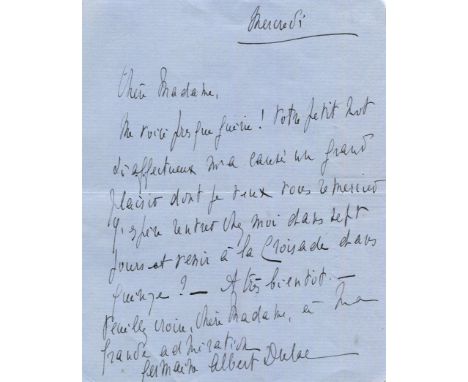 Mercredi
Chère Madame,
Me voici presque guérie ! Votre petit mot
si affectueux m'a causé un grand
plaisir dont je veux vous remercier
J'espère rentrer chez moi dans sept
jours et venir à la Croisade dans
quinze ? — A très bientôt. —
Veuillez croire, Chère Madame, à ma
grande admiration
Germaine Albert Dulac